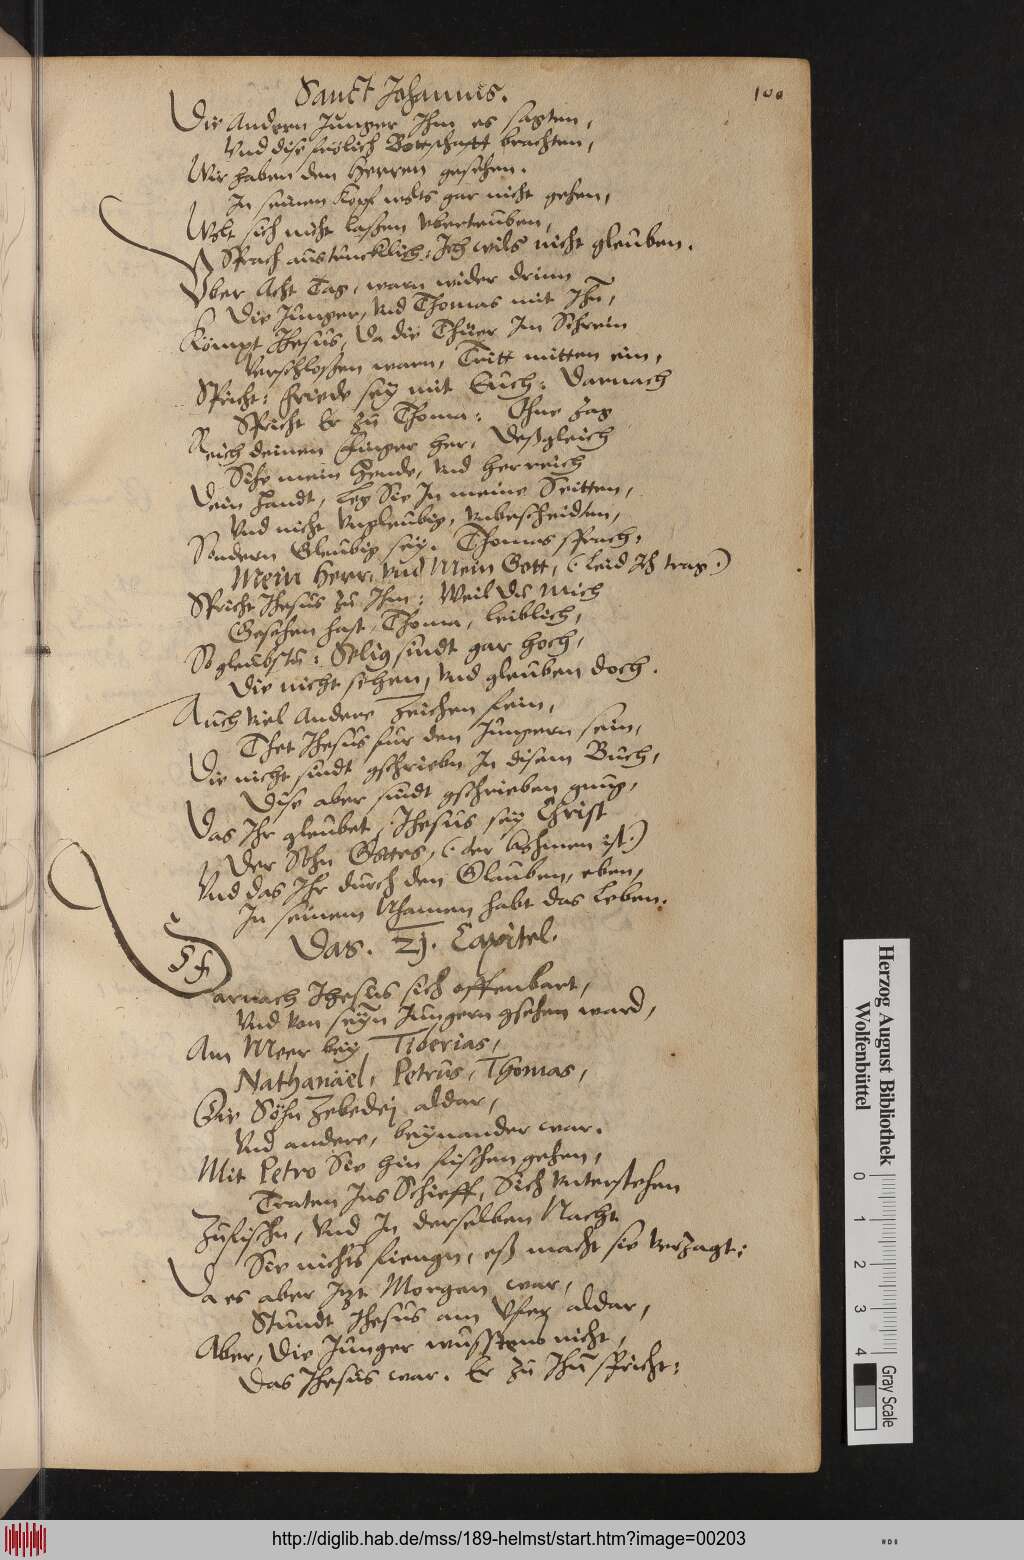 Sanct Johannis.
100
Die Andern Junger Ihm es sagten,
Vnd dise frölich Bottschafft brachten,
Wir haben den Herren gesehen.
In seinen Kopf wolts gar nicht gehen,
Wolt sich nicht laßen vberteuben,
Sprach austrucklich: Ich wils nicht gleuben.
Vber Acht Tag, warn wider drinn
Die Junger, vnd Thomas mit Ihn,
Kömpt Jhesus, da die Thüer Im Schrein
Verschloßen warn, Tritt mitten ein,
Spricht: Friede sey mit Euch: Darnach
Spricht Er zu Thoma: Ohne Zag
Reich deinen Finger her, Deßgleich
Sihe mein Hende, vnd her reich
Dein Handt, leg Sie In meine Seitten,
Vnd nicht vngleubig, vnbescheiden,
Sondern Gleubig sey. Thomas sprach:
Mein Herr, vnd Mein Gott, (: leid Ich trag :)
Spricht Jhesus zu Ihm: Weil du Mich
Gesehen hast, Thoma, leiblich,
So gleubstu: Selig sindt gar hoch,
Die nicht sehen, vnd gleuben doch.
Auch viel Andere Zeichen fein,
Thet Jhesus fur den Jungern sein,
Die nicht sindt gschriebn In disem Buch,
Dise aber sindt gschrieben gnug,
Das Ihr gleubet, Jhesus sey Christ
Der Sohn Gottes, (: der kohmen ist :)
Vnd das Ihr durch den Glauben, eben,
In seinem Nhamen habt das Leben.
Das. 21. Capitel.
Darnach Jhesus sich offenbart,
Vnd von seyn Jungern gsehen ward,
Am Meer bey Tiberias,
Nathanäel, Petrus, Thomas,
Die Söhn Zebedej aldar,
Vnd andere, beynander war.
Mit Petro Sie hin fischen gehen,
Traten Ins Schieff, Sich vnterstehen
Zufischn, Vnd In derselben Nacht
Sie nichts fiengn, eß macht sie verzagt:
Da es aber Izt Morgen war,
Stundt Jhesus am Vfer aldar,
Aber, die Junger wusstens nicht,
Das Jhesus war. Er zu Ihn spricht:
Herzog August Bibliothek
Wolfenbüttel
0 1 2 3 4
Gray Scale
http://diglib.hab.de/mss/189-helmst/start.htm?image=00203